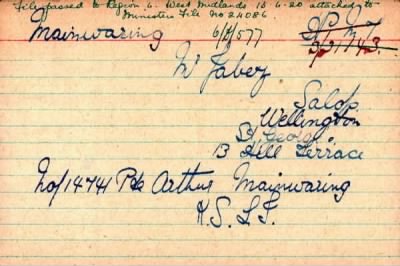 File passed to Region 6. West Midlands 15.6.20 attached to
Ministers File No 24086
Mainwaring 6/M/577
Mr Jabez
Salop
Wellington
St George
13 Hill Terrace
No/14741 Pte Arthur Mainwaring
K.S.L.I.